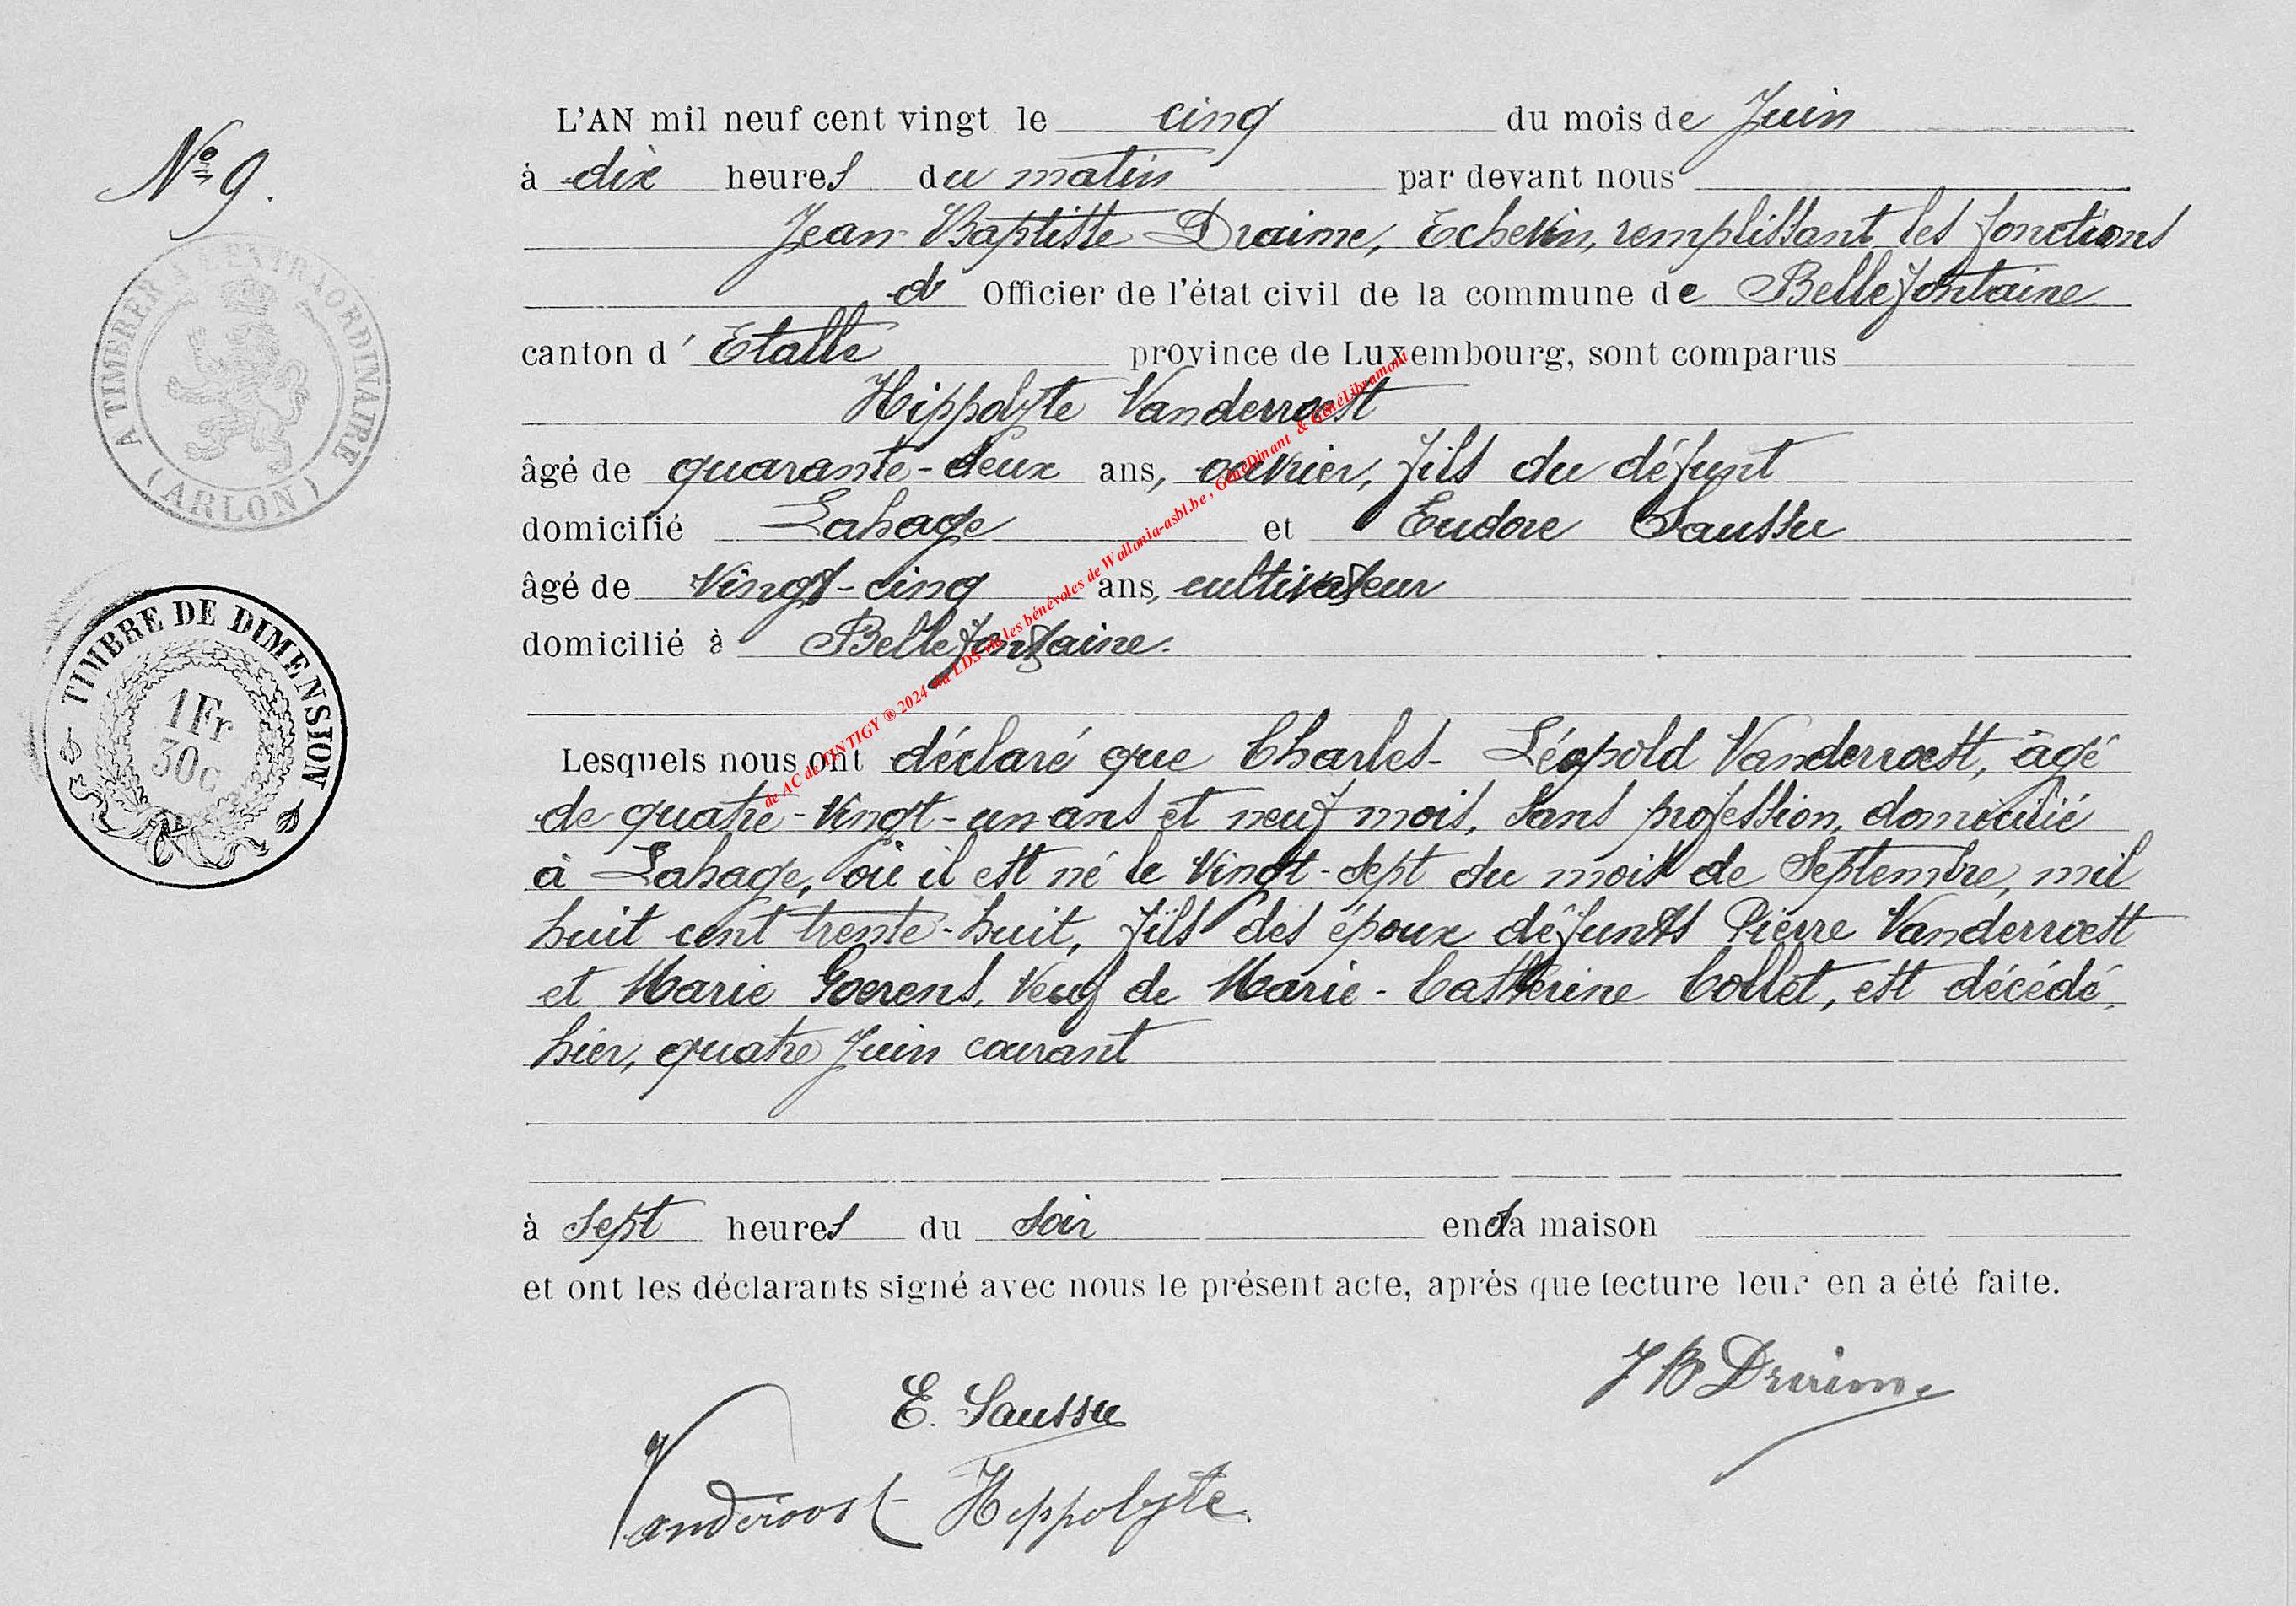 N° 9.
A TIMBRER A L'EXTRAORDINAIRE
(ARLON)
TIMBRE DE DIMENSION
1 Fr
30c
L'AN mil neuf cent vingt le cinq du mois de Juin
à dix heures du matin par devant nous
Jean-Baptiste Draime, Echevin, remplissant les fonctions
d' Officier de l'état civil de la commune de Bellefontaine
canton d' Etalle province de Luxembourg, sont comparus
Hippolyte Vanderroest
âgé de quarante-deux ans, ouvrier, fils du défunt
domicilié Lahage et Eudore Saussu
âgé de vingt-cinq ans, cultivateur
domicilié à Bellefontaine.
Lesquels nous ont déclaré que Charles-Léopold Vanderroest, âgé
de quatre-vingt-un ans et neuf mois, sans profession, domicilié
à Lahage, où il est né le vingt-sept du mois de Septembre, mil
huit cent trente-huit, fils des époux défunts Pierre Vanderroest
et Marie Goerens, veuf de Marie-Catherine Collet, est décédé,
hier, quatre Juin courant
à sept heures du soir en sa maison
et ont les déclarants signé avec nous le présent acte, après que lecture leur en a été faite.
J B Draime
E. Saussu
Vanderoost Hippolyte
de AC de TINTIGY ® 2024 via LDS via les bénévoles de Wallonia-asbl.be, GénéDinant & GénéLibramont